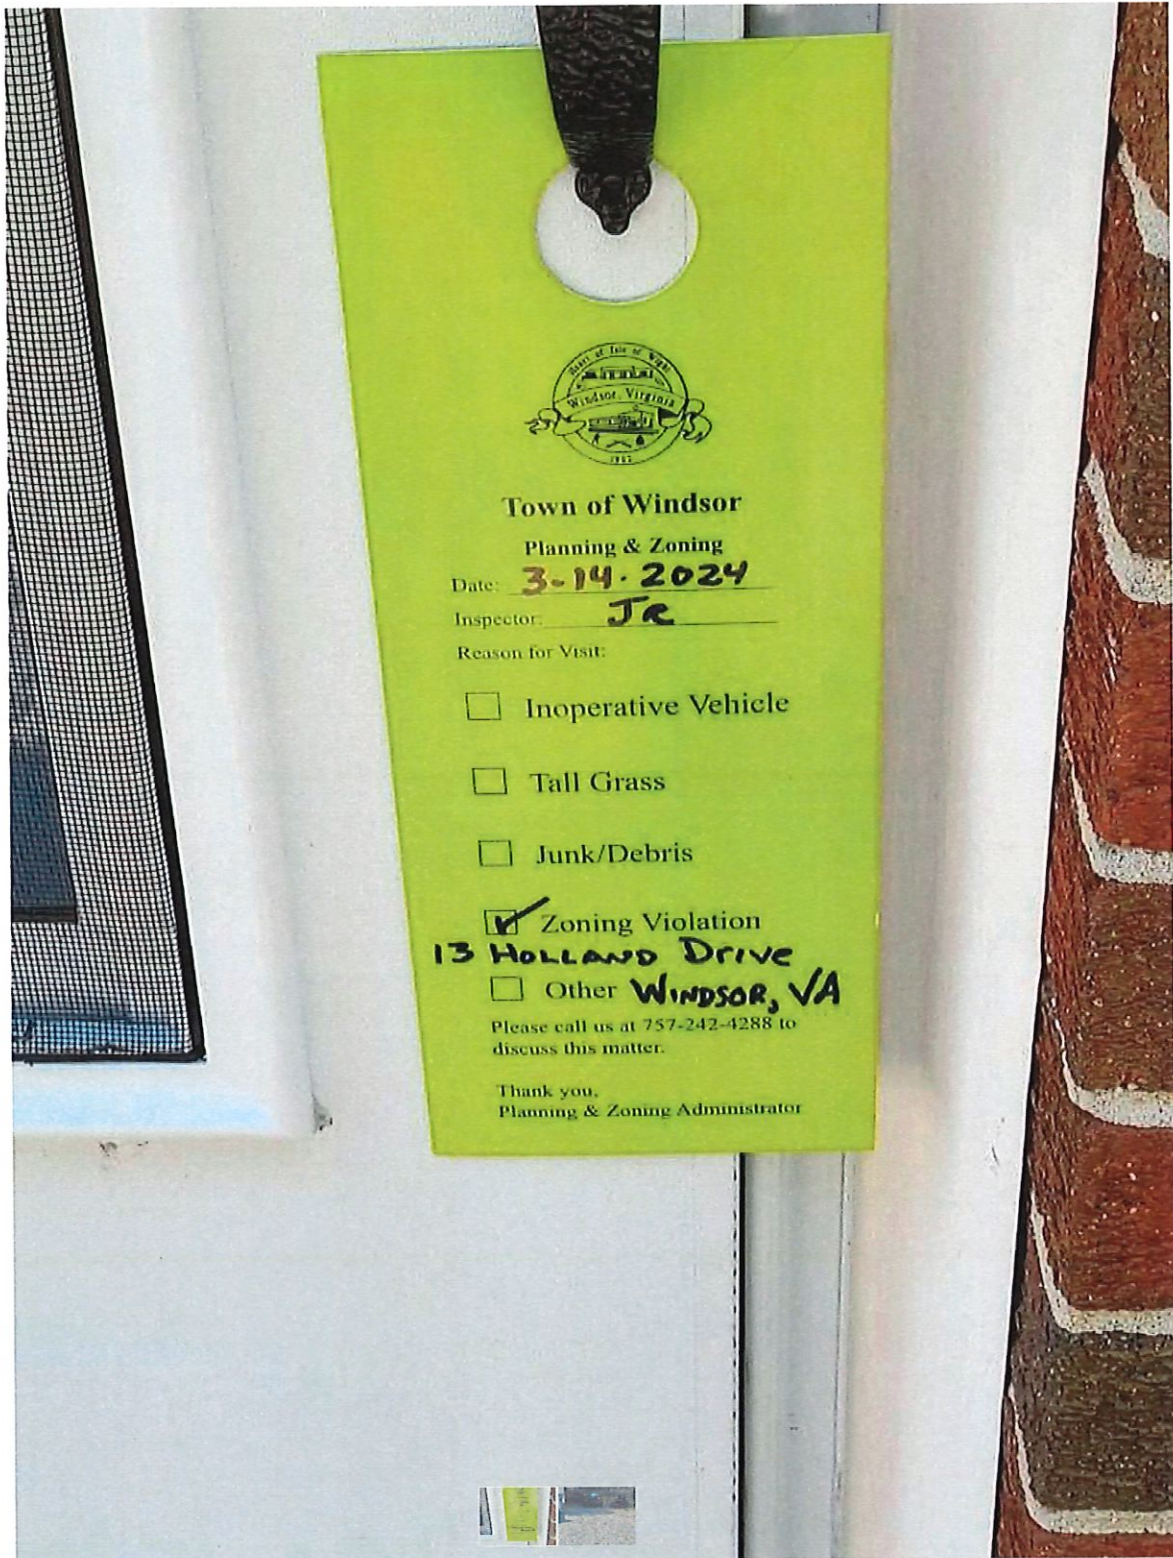 Heart of Isle of Wight
Windsor, Virginia
Town of Windsor
Planning & Zoning
Date: 3-14-2024
Inspector: JR
Reason for Visit:
Inoperative Vehicle
Tall Grass
Junk/Debris
✓ Zoning Violation
13 HOLLAND DRIVE
Other WINDSOR, VA
Please call us at 757-242-4288 to
discuss this matter.
Thank you,
Planning & Zoning Administrator